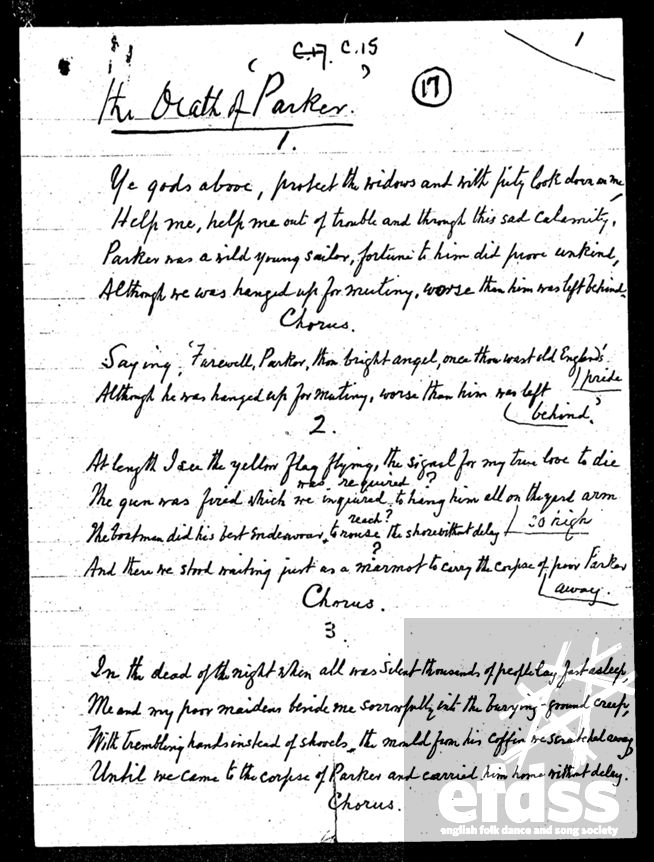 C.17. C.15
1
'The Death of Parker.'
17
1.
Ye gods above, protect the widows and with pity look down on me
Help me, help me out of trouble and through this sad calamity,
Parker was a wild young sailor, fortune to him did prove unkind,
Although we was hanged up for mutiny, worse than him was left behind.
Chorus.
Saying, 'Farewell, Parker, thou bright angel, once thou wast old England's
pride
Although he was hanged up for mutiny, worse than him was left
behind.'
2.
At length I see the yellow flag flying, the signal for my true love to die
was required?
The gun was fired which we inquired to hang him all on the yard arm
so high
reach?
The boatman did his best endeavour, to rouse the shore without delay
?
And there we stood waiting just as a marmot to carry the corpse of poor Parker
away.
Chorus.
3.
In the dead of the night when all was silent thousands of people lay fast asleep,
Me and my poor maidens beside me sorrowfully into the burying-ground creep,
With trembling hands instead of shovels, the mould from his coffin we scratched away
Until we came to the corpse of Parker and carried him home without delay.
Chorus.
efdss
english folk dance and song society